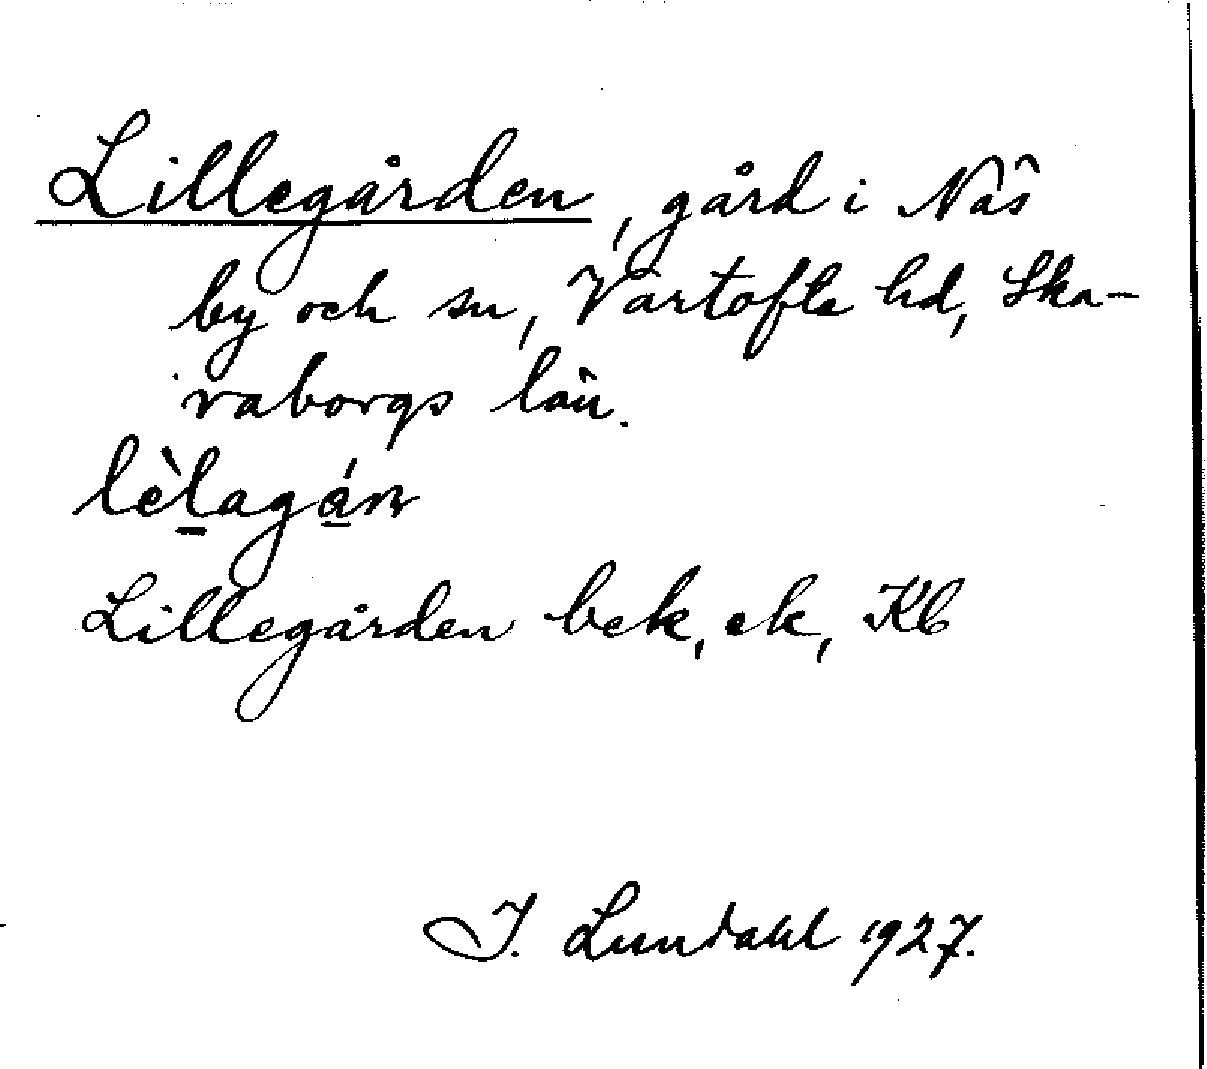 Lillegården, gård i Näs
by och sn, Vartofta hd, Ska-
raborgs län.
lèlagán
Lillegården bek, ek, Kb
I. Lundahl 1927.